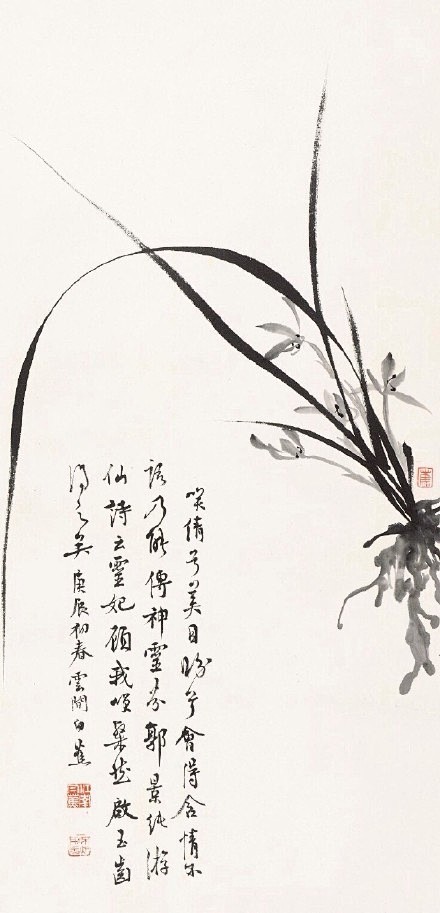 咲倩兮美目盼兮會得含情不
語乃能傳神靈芬郭景純游
仙詩云靈妃顧我咲粲然啟玉齒
得之矣庚辰初春雲間白蕉